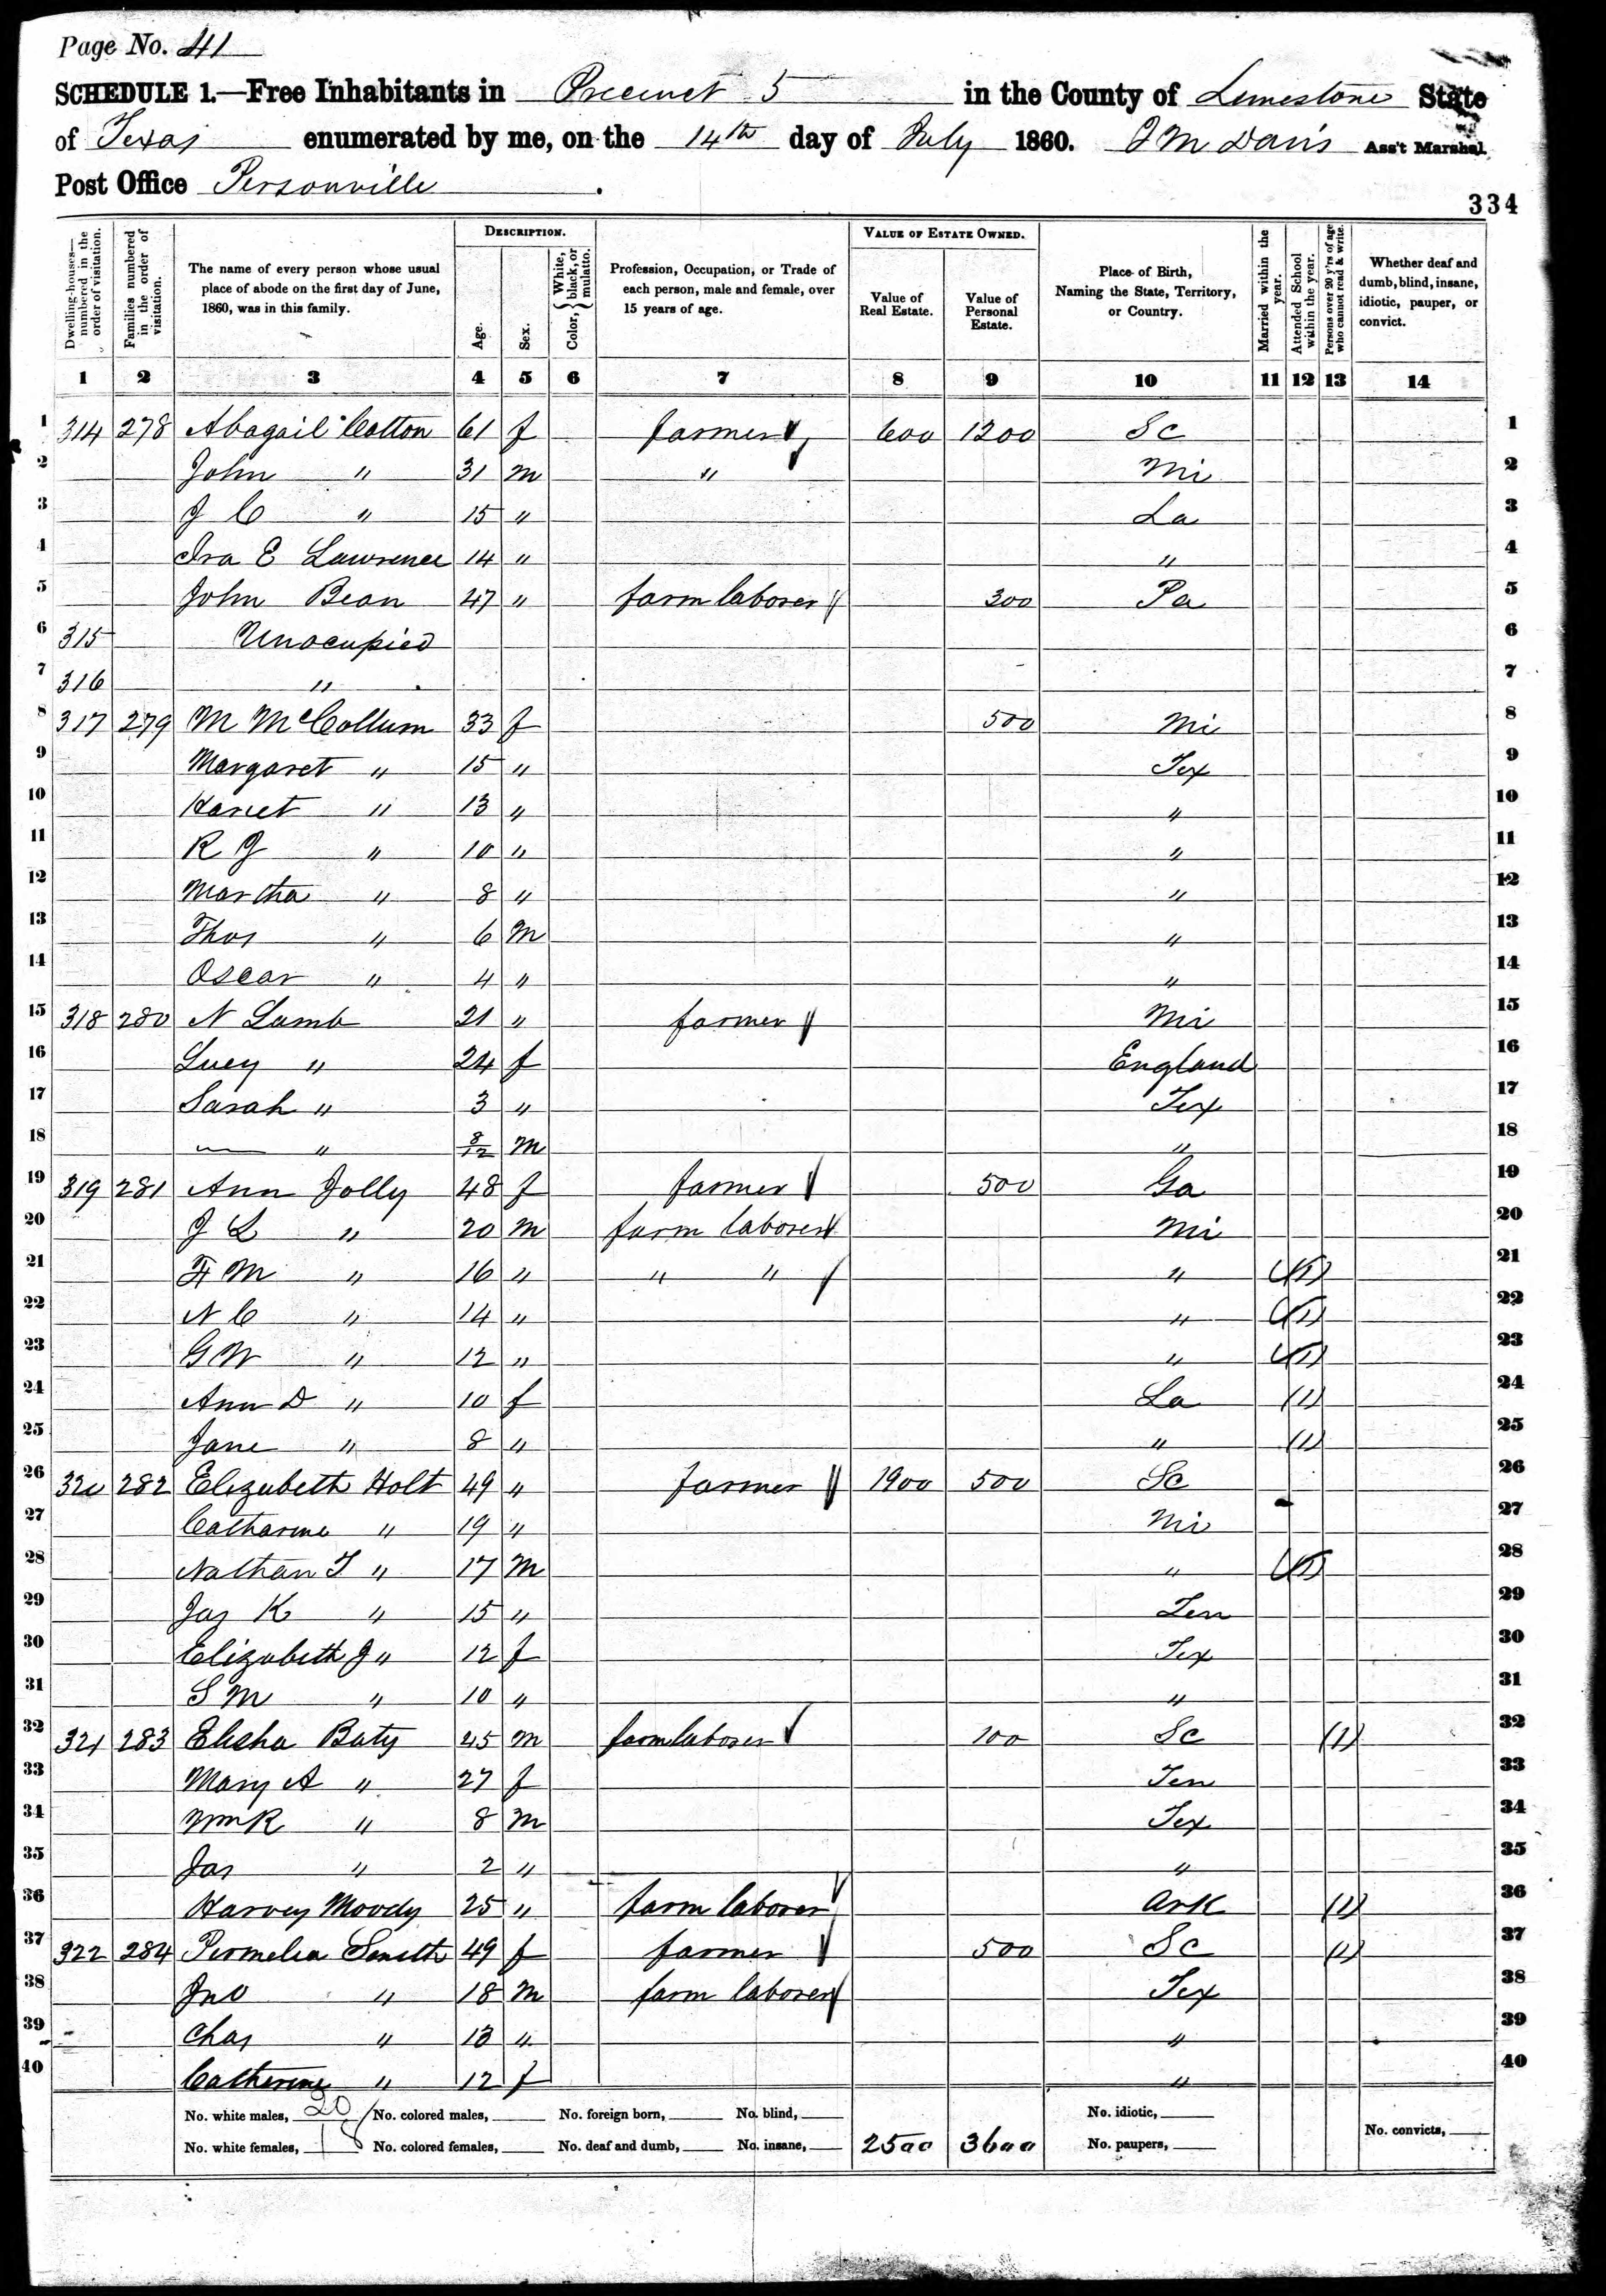 Page No. 41
SCHEDULE 1.—Free Inhabitants in Precinct 5 in the County of Limestone State
of Texas enumerated by me, on the 14th day of July 1860. J M Davis Ass't Marshal
Post Office Personville.
334
Dwelling-houses—numbered in the order of visitation. Families numbered in the order of visitation. The name of every person whose usual place of abode on the first day of June, 1860, was in this family. DESCRIPTION. Age. Sex. Color, { White, black, or mulatto. Profession, Occupation, or Trade of each person, male and female, over 15 years of age. VALUE OF ESTATE OWNED. Value of Real Estate. Value of Personal Estate. Place of Birth, Naming the State, Territory, or Country. Married within the year. Attended School within the year. Persons over 20 y'rs of age who cannot read & write. Whether deaf and dumb, blind, insane, idiotic, pauper, or convict.
1 2 3 4 5 6 7 8 9 10 11 12 13 14
1 314 278 Abagail Cotton 61 f farmer 600 1200 Sc 1
2 John " 31 m " Mi 2
3 J C " 15 " La 3
4 Ira E Lawrence 14 " " 4
5 John Bean 47 " farm laborer 300 Pa 5
6 315 Unocupied 6
7 316 " 7
8 317 279 M McCollum 33 f 500 Mi 8
9 Margaret " 15 " Tex 9
10 Hariet " 13 " " 10
11 R J " 10 " " 11
12 Martha " 8 " " 12
13 Thos " 6 m " 13
14 Oscar " 4 " " 14
15 318 280 N Lamb 21 " farmer Mi 15
16 Lucy " 24 f England 16
17 Sarah " 3 " Tex 17
18 — " 8/12 m " 18
19 319 281 Ann Jolly 48 f farmer 500 Ga 19
20 J L " 20 m farm laborer Mi 20
21 F M " 16 " " " " (1) 21
22 N C " 14 " " (1) 22
23 G W " 12 " " (1) 23
24 Ann D " 10 f La (1) 24
25 Jane " 8 " " (1) 25
26 320 282 Elizabeth Holt 49 " farmer 1900 500 Sc 26
27 Catharine " 19 " Mi 27
28 Nathan T " 17 m " (1) 28
29 Jas K " 15 " Ten 29
30 Elizabeth J " 12 f Tex 30
31 S M " 10 " " 31
32 321 283 Elisha Baty 45 m farm laborer 100 Sc (1) 32
33 Mary A " 27 f Ten 33
34 Wm R " 8 m Tex 34
35 Jas " 2 " " 35
36 Harvey Moody 25 " farm laborer Ark (1) 36
37 322 284 Permelia Smith 49 f farmer 500 Sc (1) 37
38 Jno " 18 m farm laborer Tex 38
39 Chas " 13 " " 39
40 Catherine " 12 f " 40
No. white males, 20 No. colored males, No. foreign born, No. blind, No. idiotic,
No. white females, 18 No. colored females, No. deaf and dumb, No. insane, 2500 3600 No. paupers, No. convicts,